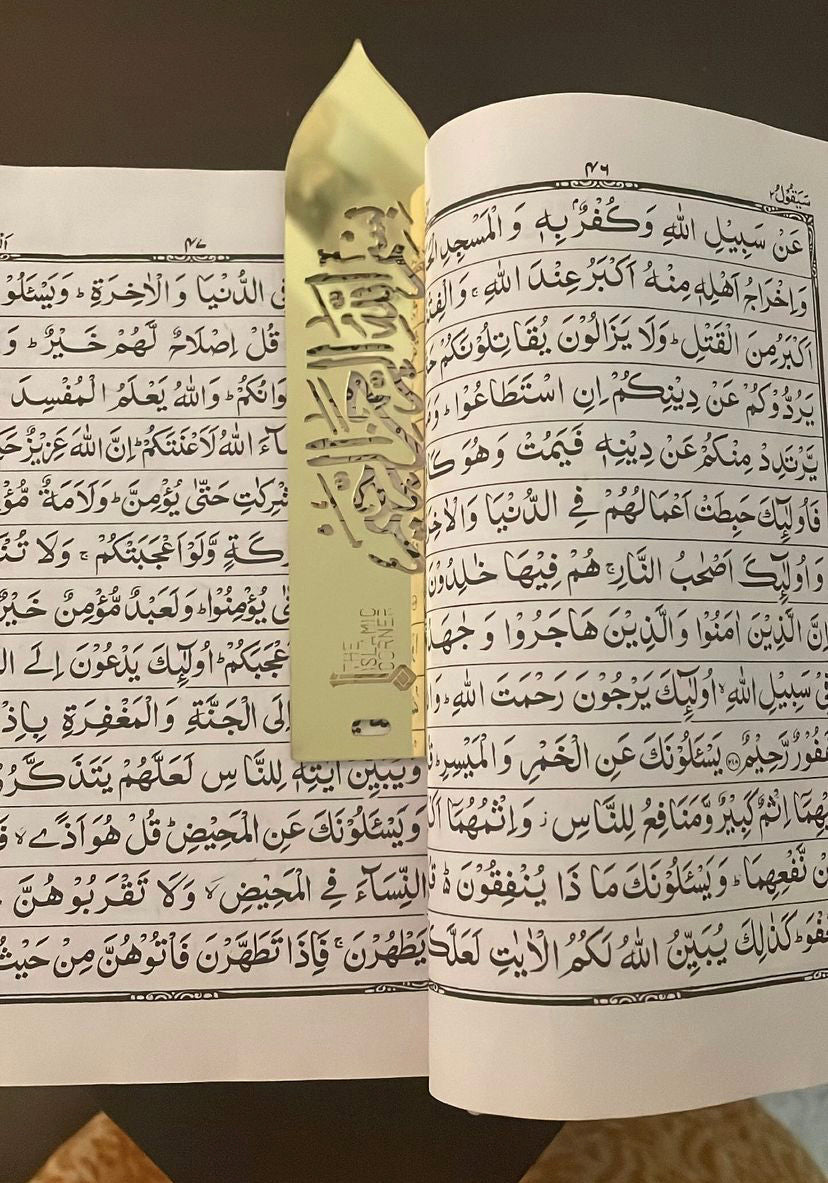 ٤٦
سَيَقُوْلُ ٢
عَنْ سَبِيْلِ اللّٰهِ وَكُفْرٌۢ بِهٖ وَ الْمَسْجِدِ
وَاِخْرَاجُ اَهْلِهٖ مِنْهُ اَكْبَرُ عِنْدَ اللّٰهِ ۚ
اَكْبَرُ مِنَ الْقَتْلِ ؕ وَلَا يَزَالُوْنَ يُقَاتِلُوْنَكُمْ
يَرُدُّوْكُمْ عَنْ دِيْنِكُمْ اِنِ اسْتَطَاعُوْا ؕ
يَّرْتَدِدْ مِنْكُمْ عَنْ دِيْنِهٖ فَيَمُتْ وَهُوَ
فَاُولٰٓئِكَ حَبِطَتْ اَعْمَالُهُمْ فِي الدُّنْيَا
وَاُولٰٓئِكَ اَصْحٰبُ النَّارِ ۚ هُمْ فِيْهَا خٰلِدُوْنَ
اِنَّ الَّذِيْنَ اٰمَنُوْا وَالَّذِيْنَ هَاجَرُوْا
سَبِيْلِ اللّٰهِ ۙ اُولٰٓئِكَ يَرْجُوْنَ رَحْمَتَ اللّٰهِ ؕ
رَّحِيْمٌ ﴿۲۱۸﴾ يَسْـَٔلُوْنَكَ عَنِ الْخَمْرِ وَالْمَيْسِرِ ؕ
اِثْمٌ كَبِيْرٌ وَّمَنَافِعُ لِلنَّاسِ ؗ وَاِثْمُهُمَاۤ
نَّفْعِهِمَا ؕ وَيَسْـَٔلُوْنَكَ مَا ذَا يُنْفِقُوْنَ ؕ
كَذٰلِكَ يُبَيِّنُ اللّٰهُ لَكُمُ الْاٰيٰتِ
بِسْمِ اللّٰهِ الرَّحْمٰنِ الرَّحِيْمِ
THE
ISLAMIC
CORNER
٤٧
الدُّنْيَا وَالْاٰخِرَةِ ؕ
قُلْ اِصْلَاحٌ لَّهُمْ خَيْرٌ ؕ
وَاللّٰهُ يَعْلَمُ الْمُفْسِدَ
اللّٰهُ لَاَعْنَتَكُمْ ؕ اِنَّ اللّٰهَ عَزِيْزٌ
حَتّٰى يُؤْمِنَّ ؕ وَلَاَمَةٌ
وَّلَوْ اَعْجَبَتْكُمْ ۚ وَلَا
يُؤْمِنُوْا ؕ وَلَعَبْدٌ مُّؤْمِنٌ خَيْرٌ
اُولٰٓئِكَ يَدْعُوْنَ اِلَى
اِلَى الْجَنَّةِ وَالْمَغْفِرَةِ
وَيُبَيِّنُ اٰيٰتِهٖ لِلنَّاسِ لَعَلَّهُمْ
وَيَسْـَٔلُوْنَكَ عَنِ الْمَحِيْضِ ؕ قُلْ هُوَ اَذًى ۙ
النِّسَآءَ فِي الْمَحِيْضِ ۙ وَلَا تَقْرَبُوْهُنَّ
يَطْهُرْنَ ۚ فَاِذَا تَطَهَّرْنَ فَاْتُوْهُنَّ مِنْ حَيْثُ